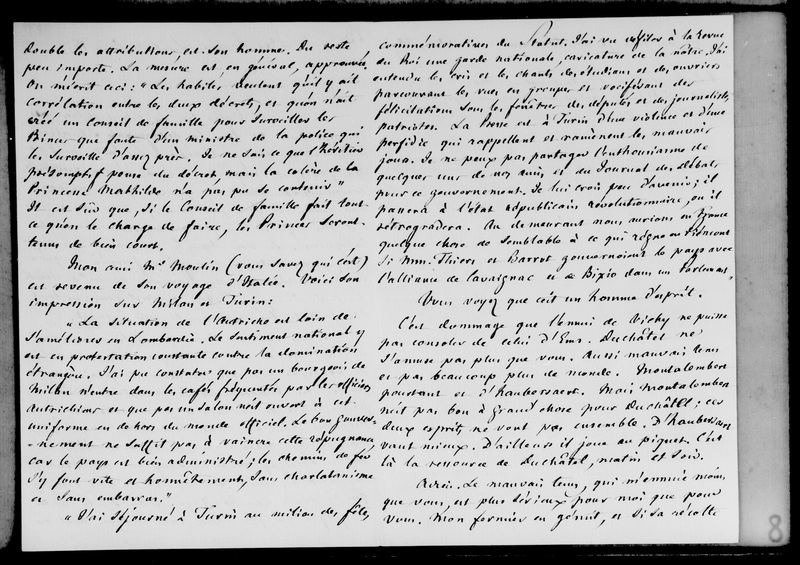 double les attributions, est son homme. Du reste,
peu importe. La mesure est en général, approuvée.
On m'écrit ceci: "Les habiles veulent qu'il y ait
corrélation entre les deux décrets, et qu'on n'ait
créé un Conseil de famille pour surveiller les
Princes que faute d'un ministre de la police qui
les surveille d'assez près. Je ne sais ce que l'héritier
présomptif pense du décret, mais la colère de la
Princesse Mathilde n'a pas pu se contenir"
Il est sûr que, si le Conseil de famille fait tout
ce qu'on le charge de faire, les Princes seront
tenus de bien court.
Mon ami Mr Moulin (vous savez qui c'est)
est revenu de son voyage d'Italie. Voici son
impression sur Milan et Turin:
"La situation de l'Autriche est loin de
s'améliorer en Lombardie. Le sentiment national y
est en protestation constante contre la domination
étrangère. J'ai pu constater que pas un bourgeois de
Milan n'entre dans les cafés fréquentés par les officiers
autrichiens et que pas un salon n'est ouvert à cet
uniforme en dehors du monde officiel. Le bon gouver-
-nement ne suffit pas à vaincre cette répugnance
car le pays est bien administré; les chemins de fer
s'y font vite et honnêtement, sans charlatanisme
et sans embarras."
"J'ai séjourné à Turin au milieu des fêtes
commémoratives du Statut. J'ai vu défiler à la revue
du Roi une garde nationale, caricature de la nôtre. J'ai
entendu les cris et les chants des étudians et des ouvriers
parcourant les rues en groupes et vociférant des
félicitations sous les fenêtres des députés et des journalistes
patriotes. La Presse est à Turin d'une violence et d'une
perfidie qui rappellent et ramènent les mauvais
jours. Je ne peux pas partager l'enthousiasme de
quelques uns de nos amis et du Journal des débats
pour ce gouvernement. Je lui crois peu d'avenir; il
passera à l'état républicain révolutionnaire, ou il
rétrogradera. Au demeurant nous aurions en France
quelque chose de semblable à ce qui règne en Piémont
si MM. Thiers et Barrot gouvernoient le pays avec
l'alliance de Cavaignac et de Bixio dans un Parlement"
Vous voyez que c'est un homme d'esprit.
C'est dommage que l'ennui de Vichy ne puisse
pas consoler de celui d'Ems. Duchâtel ne
s'amuse pas plus que vous. Aussi mauvais tems
et pas beaucoup plus de monde. Montalembert
pourtant et d'Haubersaert. Mais Montalembert
n'est pas bon à grand'chose pour Duchâtel; ces
deux esprits ne vont pas ensemble. D'Haubersaert
vaut mieux. D'ailleurs il joue au piquet. C'est
là la ressource de Duchâtel, matin et soir.
Adieu. Le mauvais tems, qui m'ennuie moins
que vous, est plus sérieux pour moi que pour
vous. Mon fermier en gémit, et si sa récolte
8